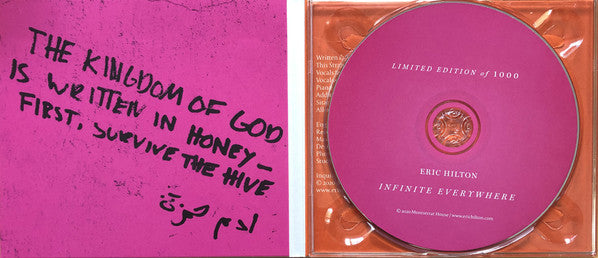 THE KINGDOM OF GOD
IS WRITTEN IN HONEY –
FIRST, SURVIVE THE HIVE
ادم حمزة
Written
This
Vocals
Vocals
LIMITED EDITION of 1000
ERIC HILTON
INFINITE EVERYWHERE
© 2020 Montserrat House / www.erichilton.com